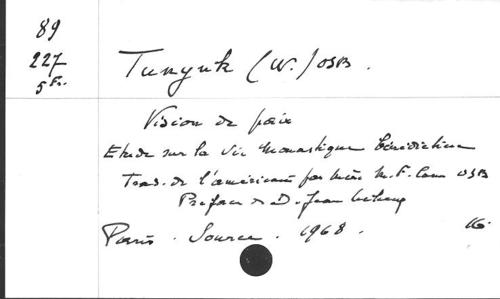 89
227
5 Fr.
Tunynk (W.) OSB.
Vision de paix
Etude sur la vie monastique bénédictine
Trad. de l'américain par Mère M. F. OSB
Préface de D. Jean Leclercq
Paris. Source. 1968.
16